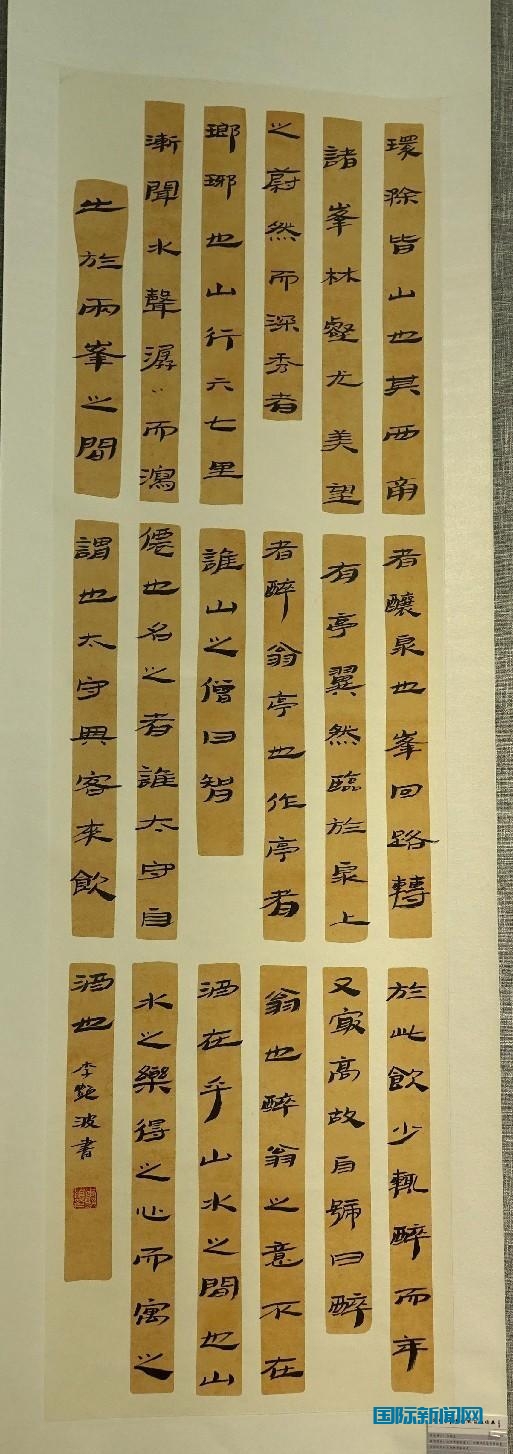 環滁皆山也其西南
諸峯林壑尤美望
之蔚然而深秀者
瑯琊也山行六七里
漸聞水聲潺〻而瀉
出於兩峯之間
者釀泉也峯回路轉
有亭翼然臨於泉上
者醉翁亭也作亭者
誰山之僧曰智
僊也名之者誰太守自
謂也太守與客來飲
於此飲少輒醉而年
又冣高故自號曰醉
翁也醉翁之意不在
酒在乎山水之間也山
水之樂得之心而寓之
酒也
李艷波書
国际新闻网